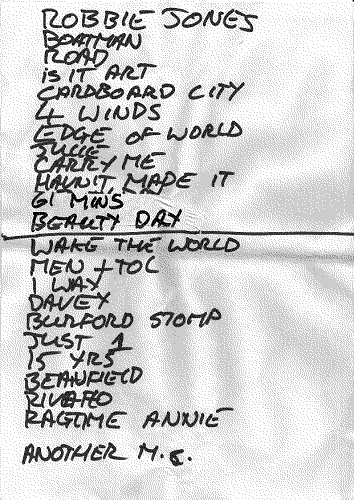 ROBBIE JONES
BOATMAN
ROAD
iS IT ART
CARDBOARD CITY
4 WINDS
EDGE OF WORLD
JULIE
CARRY ME
HAVN'T MADE IT
61 MINS
BEAUTY DAY
WAKE THE WORLD
MEN + TOL
1 WAY
DAVEY
BURFORD STOMP
JUST 1
15 YRS
BEANFIELD
RIVERFLO
RAGTIME ANNIE
ANOTHER M.C.